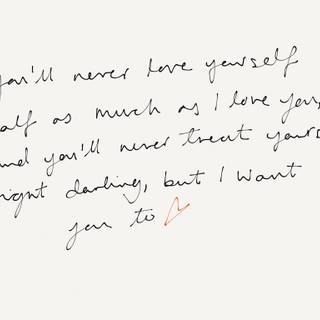 you'll never love yourself
alf as much as I love you,
nd you'll never treat yours
ight darling, but I want
you to